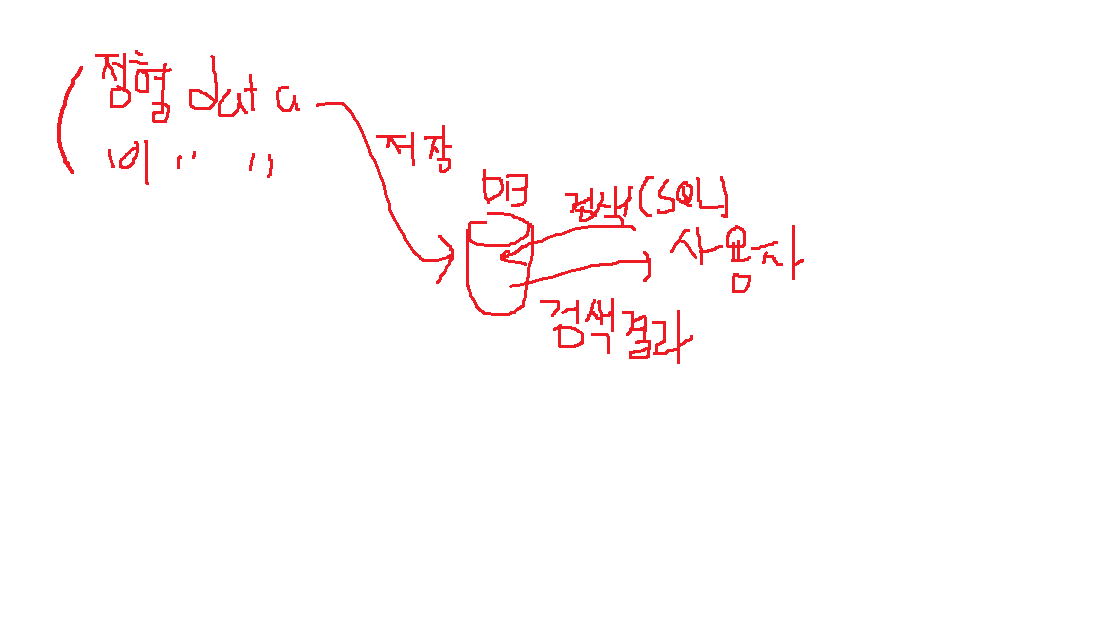 정형 data
비 '' ''
저장
DB
검색(SQL)
사용자
검색결과